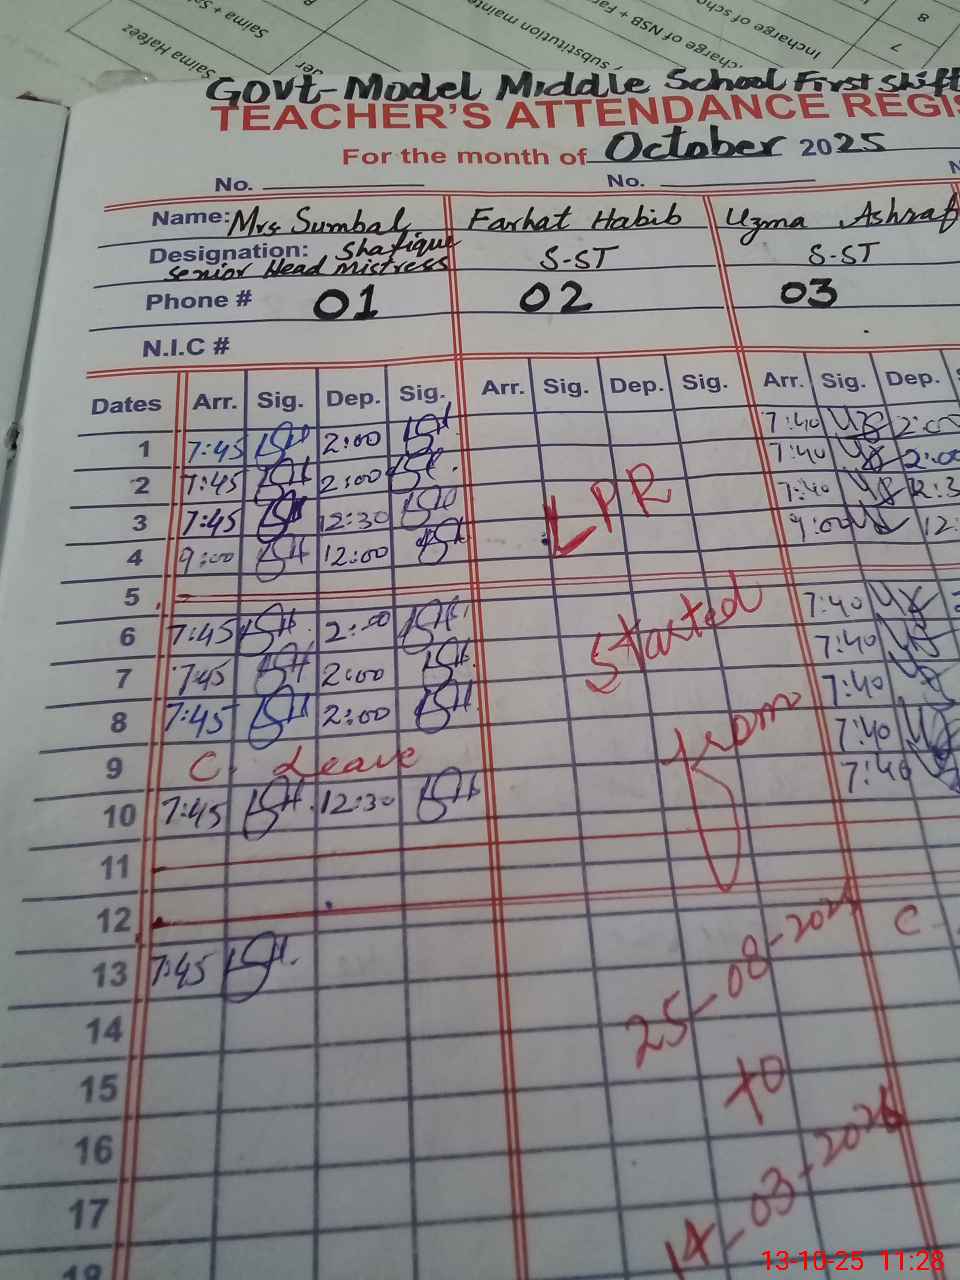 Saima Hafeez
Saima + S
substitution mainte
charge of NSB + Fa
Incharge of scho
7
8
Govt-Model Middle School First Shift
TEACHER'S ATTENDANCE REGIS
For the month of October 2025
No. No.
Name: Mrs Sumbal Farhat Habib Uzma Ashraf
Designation: Shafique S-ST S-ST
Senior Head Mistress
Phone # 01 02 03
N.I.C #
Dates Arr. Sig. Dep. Sig. Arr. Sig. Dep. Sig. Arr. Sig. Dep. S
1 7:45 2:00 7:40 2:00
2 7:45 2:00 7:40 2:00
3 7:45 12:30 7:40 12:3
4 9:00 12:00 9:00 12:
LPR
5
6 7:45 2:00 7:40
Started
7 7:45 2:00 7:40
8 7:45 2:00 7:40
from
9 C. Leave 7:40
10 7:45 12:30 7:40
11
12
25-08-202
C
13 7:45
14
15
to
16
14-03-2026
17
18
13-10-25 11:28